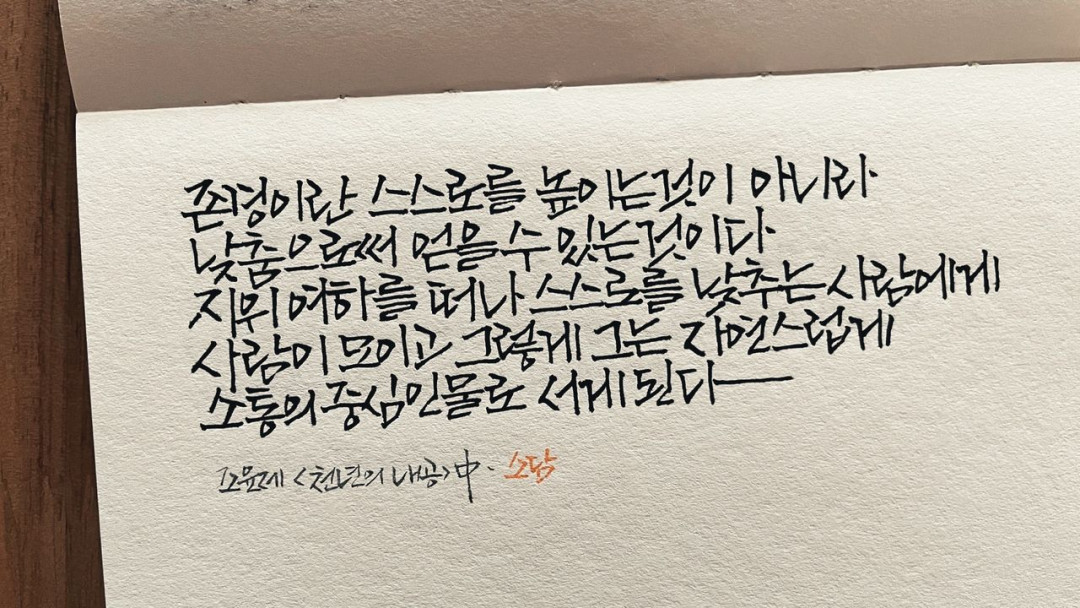 존경이란 스스로를 높이는것이 아니라
낮춤으로써 얻을 수 있는것이다
지위 여하를 떠나 스스로를 낮추는 사람에게
사람이 모이고 그렇게 그는 자연스럽게
소통의 중심인물로 서게 된다
조윤제 <천년의 내공>中. 소담